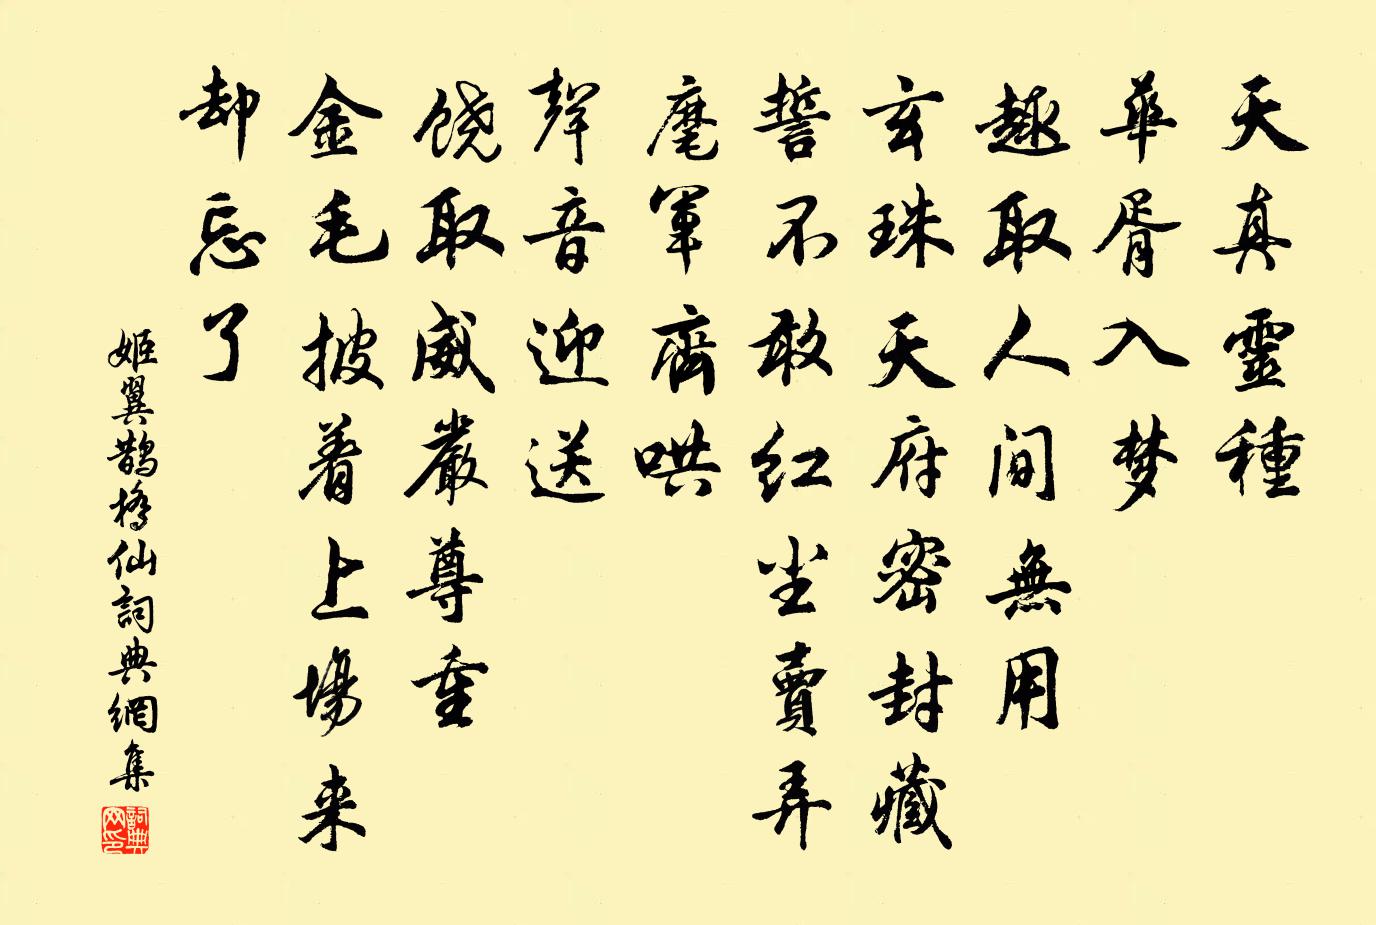 天真靈種
華胥入梦
趣取人间無用
玄珠天府密封藏
誓不敢红尘賣弄
麾軍齊哄
聲音迎送
饶取威嚴尊重
金毛披着上場来
却忘了
姬翼鹊橋仙詞典網集
詞典網印